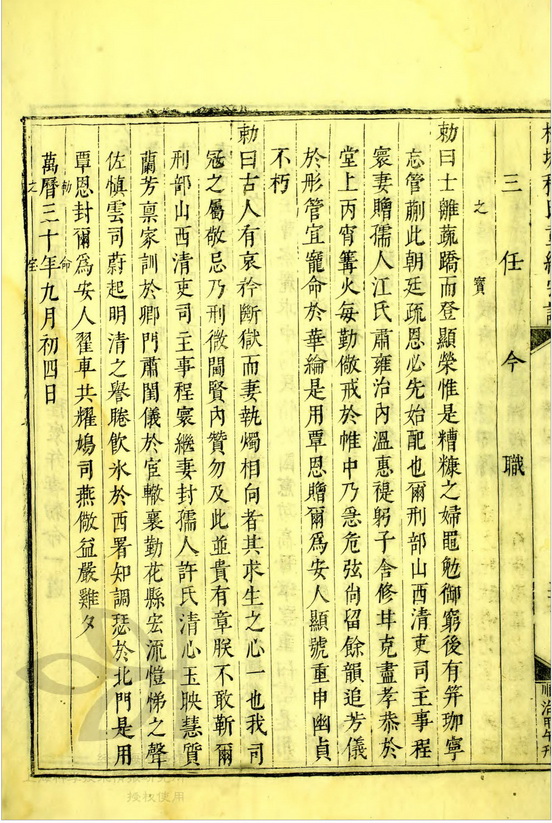 三任今職
之寶
勅曰士離蔬蹻而登顯榮惟是糟糠之婦黽勉御窮後有笄珈寧
忘管蒯此朝廷疏恩必先始配也爾刑部山西清吏司主事程
寰妻贈孺人江氏肅雍治內溫惠禔躬子舍修𦙶克盡孝恭於
堂上丙宵篝火每勤儆戒於帷中乃惫危弦尙留餘韻追芳儀
於彤管宜寵命於華綸是用覃恩贈爾爲安人顯號重申幽貞
不朽
勅曰古人有哀矜斷獄而妻執燭相向者其求生之心一也我司
宼之屬敬忌乃刑微閫賢內贊勿及此並貴有章朕不敢靳爾
刑部山西清吏司主事程寰繼妻封孺人許氏清心玉映慧質
蘭芳禀家訓於卿門肅閨儀於宦轍襄勤花縣宏流愷悌之聲
佐愼雲司蔚起明清之譽睠飮氷於西署知調瑟於北門是用
覃恩封爾爲安人翟車共耀鳲司燕儆益嚴雞夕
勅命
萬曆三十年九月初四日
之寶
授权使用